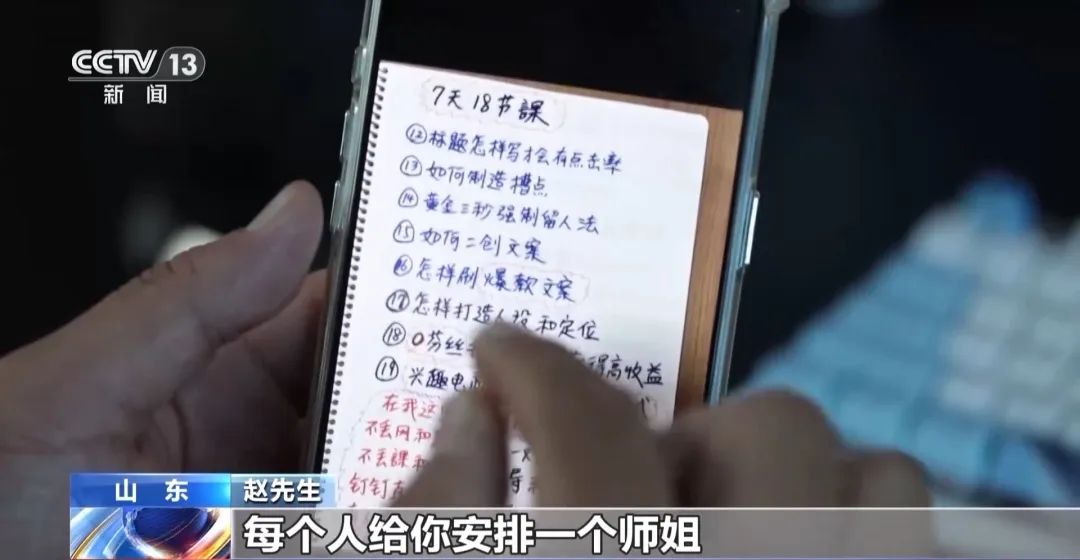 CCTV 13
新闻
7天18节課
⑫标题怎样写才会有点击率
⑬如何制造槽点
⑭黄金三秒强制留人法
⑮如何二创文案
⑯怎样刷爆款文案
⑰怎样打造人设和定位
⑱0芬丝 得高收益
⑲兴趣电
在我这
不丢网和
不丢課和
钉钉直
山东
赵先生
每个人给你安排一个师姐